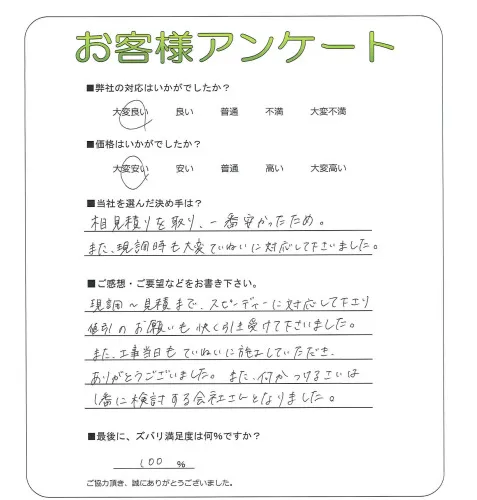 お客様アンケート
■弊社の対応はいかがでしたか？
大変良い 良い 普通 不満 大変不満
■価格はいかがでしたか？
大変安い 安い 普通 高い 大変高い
■当社を選んだ決め手は？
相見積りを取り、一番安かったため。
また、現調時も大変ていねいに対応して下さいました。
■ご感想・ご要望などをお書き下さい。
現調〜見積まで、スピーディーに対応して下さり
値引のお願いも快く引き受けて下さいました。
また、工事当日もていねいに施工していただき、
ありがとうございました。また、何かつけるさいは
1番に検討する会社さんとなりました。
■最後に、ズバリ満足度は何%ですか？
100 %
ご協力頂き、誠にありがとうございました。